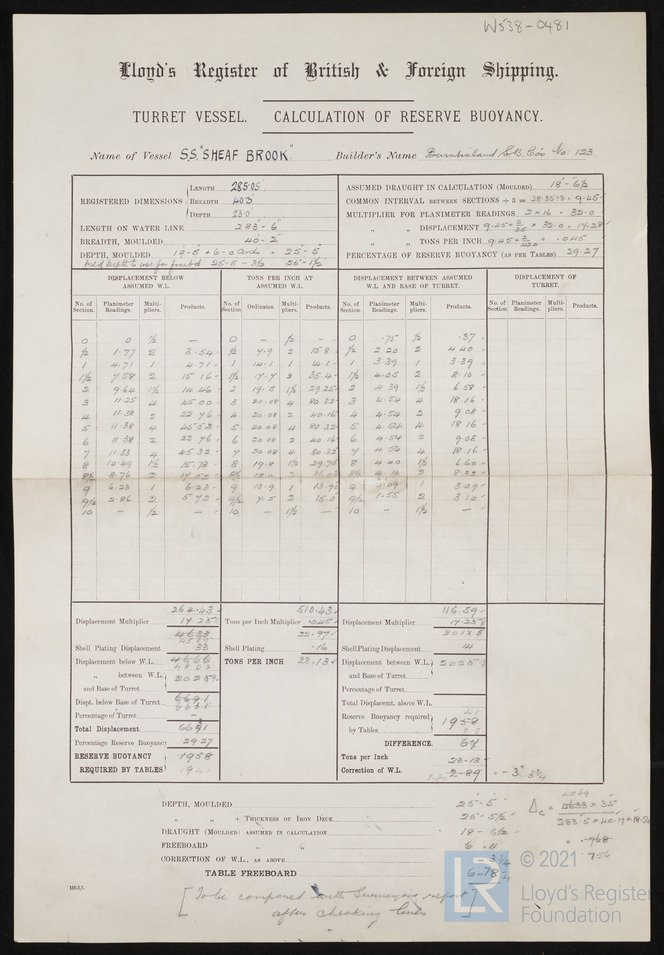 W538-0481
Lloyd's Register of British & Foreign Shipping.
TURRET VESSEL. CALCULATION OF RESERVE BUOYANCY.
Name of Vessel S.S. "SHEAF BROOK" Builder's Name Burntisland S.B. Co's No. 123
REGISTERED DIMENSIONS
LENGTH 285.05
BREADTH
DEPTH 23.0
LENGTH ON WATER LINE 283'-6"
BREADTH, MOULDED 40'-2"
DEPTH, MOULDED 19.5 + 6.0 = 25'-5"
25-5 - 3½ 25'-1½"
ASSUMED DRAUGHT IN CALCULATION (MOULDED) 18'-6½
COMMON INTERVAL BETWEEN SECTIONS ÷ 3 = 9.45
MULTIPLIER FOR PLANIMETER READINGS 2 × 16 = 32.0
" " DISPLACEMENT 9.45 × 2/35 × 32.0 = 17.28
" " TONS PER INCH 9.45 × 2/420 = .045
PERCENTAGE OF RESERVE BUOYANCY (AS PER TABLES) 29.27
DISPLACEMENT BELOW ASSUMED W.L. TONS PER INCH AT ASSUMED W.L. DISPLACEMENT BETWEEN ASSUMED W.L. AND BASE OF TURRET. DISPLACEMENT OF TURRET.
No. of Section. Planimeter Readings. Multipliers. Products. No. of Section. Ordinates. Multipliers. Products. No. of Section. Planimeter Readings. Multipliers. Products. No. of Section. Planimeter Readings. Multipliers. Products.
0 0 ½ — 0 — ½ — 0 .75 ½ .37
½ 1.77 2 3.54 ½ 7.9 2 15.8 ½ 2.20 2 4.40
1 4.71 1 4.71 1 14.1 1 14.1 1 3.39 1 3.39
1½ 7.58 2 15.16 1½ 17.7 2 35.4 1½ 4.05 2 8.10
2 9.64 1½ 14.46 2 19.5 1½ 29.25 2 4.39 1½ 6.58
3 11.25 4 45.00 3 20.08 4 80.32 3 4.54 4 18.16
4 11.38 2 22.76 4 20.08 2 40.16 4 4.54 2 9.08
5 11.38 4 45.52 5 20.08 4 80.32 5 4.54 4 18.16
6 11.38 2 22.76 6 20.08 2 40.16 6 4.54 2 9.08
7 11.33 4 45.32 7 20.08 4 80.32 7 4.54 4 18.16
8 10.49 1½ 15.73 8 19.8 1½ 29.70 8 4.40 1½ 6.60
8½ 8.76 2 17.52 8½ 2 8½ 2
9 6.23 1 6.23 9 13.9 1 13.9 9 1 3.09
9½ 2.86 2 5.72 9½ 7.5 2 15.0 9½ 1.55 2 3.10
10 — ½ — 10 — 1½ — 10 — 1½ —
264.43 510.43 116.59
Displacement Multiplier 17.28 Tons per Inch Multiplier .045 Displacement Multiplier 17.28
22.97
Shell Plating Displacement 33 Shell Plating .16 Shell Plating Displacement
Displacement below W.L. TONS PER INCH 23.13 Displacement between W.L. and Base of Turret
" between W.L. and Base of Turret
Percentage of Turret
Dispt. below Base of Turret Total Displacemt. above W.L.
Percentage of Turret — Reserve Buoyancy required by Tables 1958
Total Displacement 6691
Percentage Reserve Buoyancy 29.27 DIFFERENCE 67
RESERVE BUOYANCY REQUIRED BY TABLES 1958 Tons per Inch 23.13
Correction of W.L. 2.89 = -3"
DEPTH, MOULDED 25'-5"
" " + THICKNESS OF IRON DECK 25-5½
DRAUGHT (MOULDED) ASSUMED IN CALCULATION 18-6½
FREEBOARD " " 6.11
CORRECTION OF W.L., AS ABOVE
TABLE FREEBOARD
.768
756
[To be compared with Surveyors report after checking lines]
© 2021
Lloyd's Register
Foundation